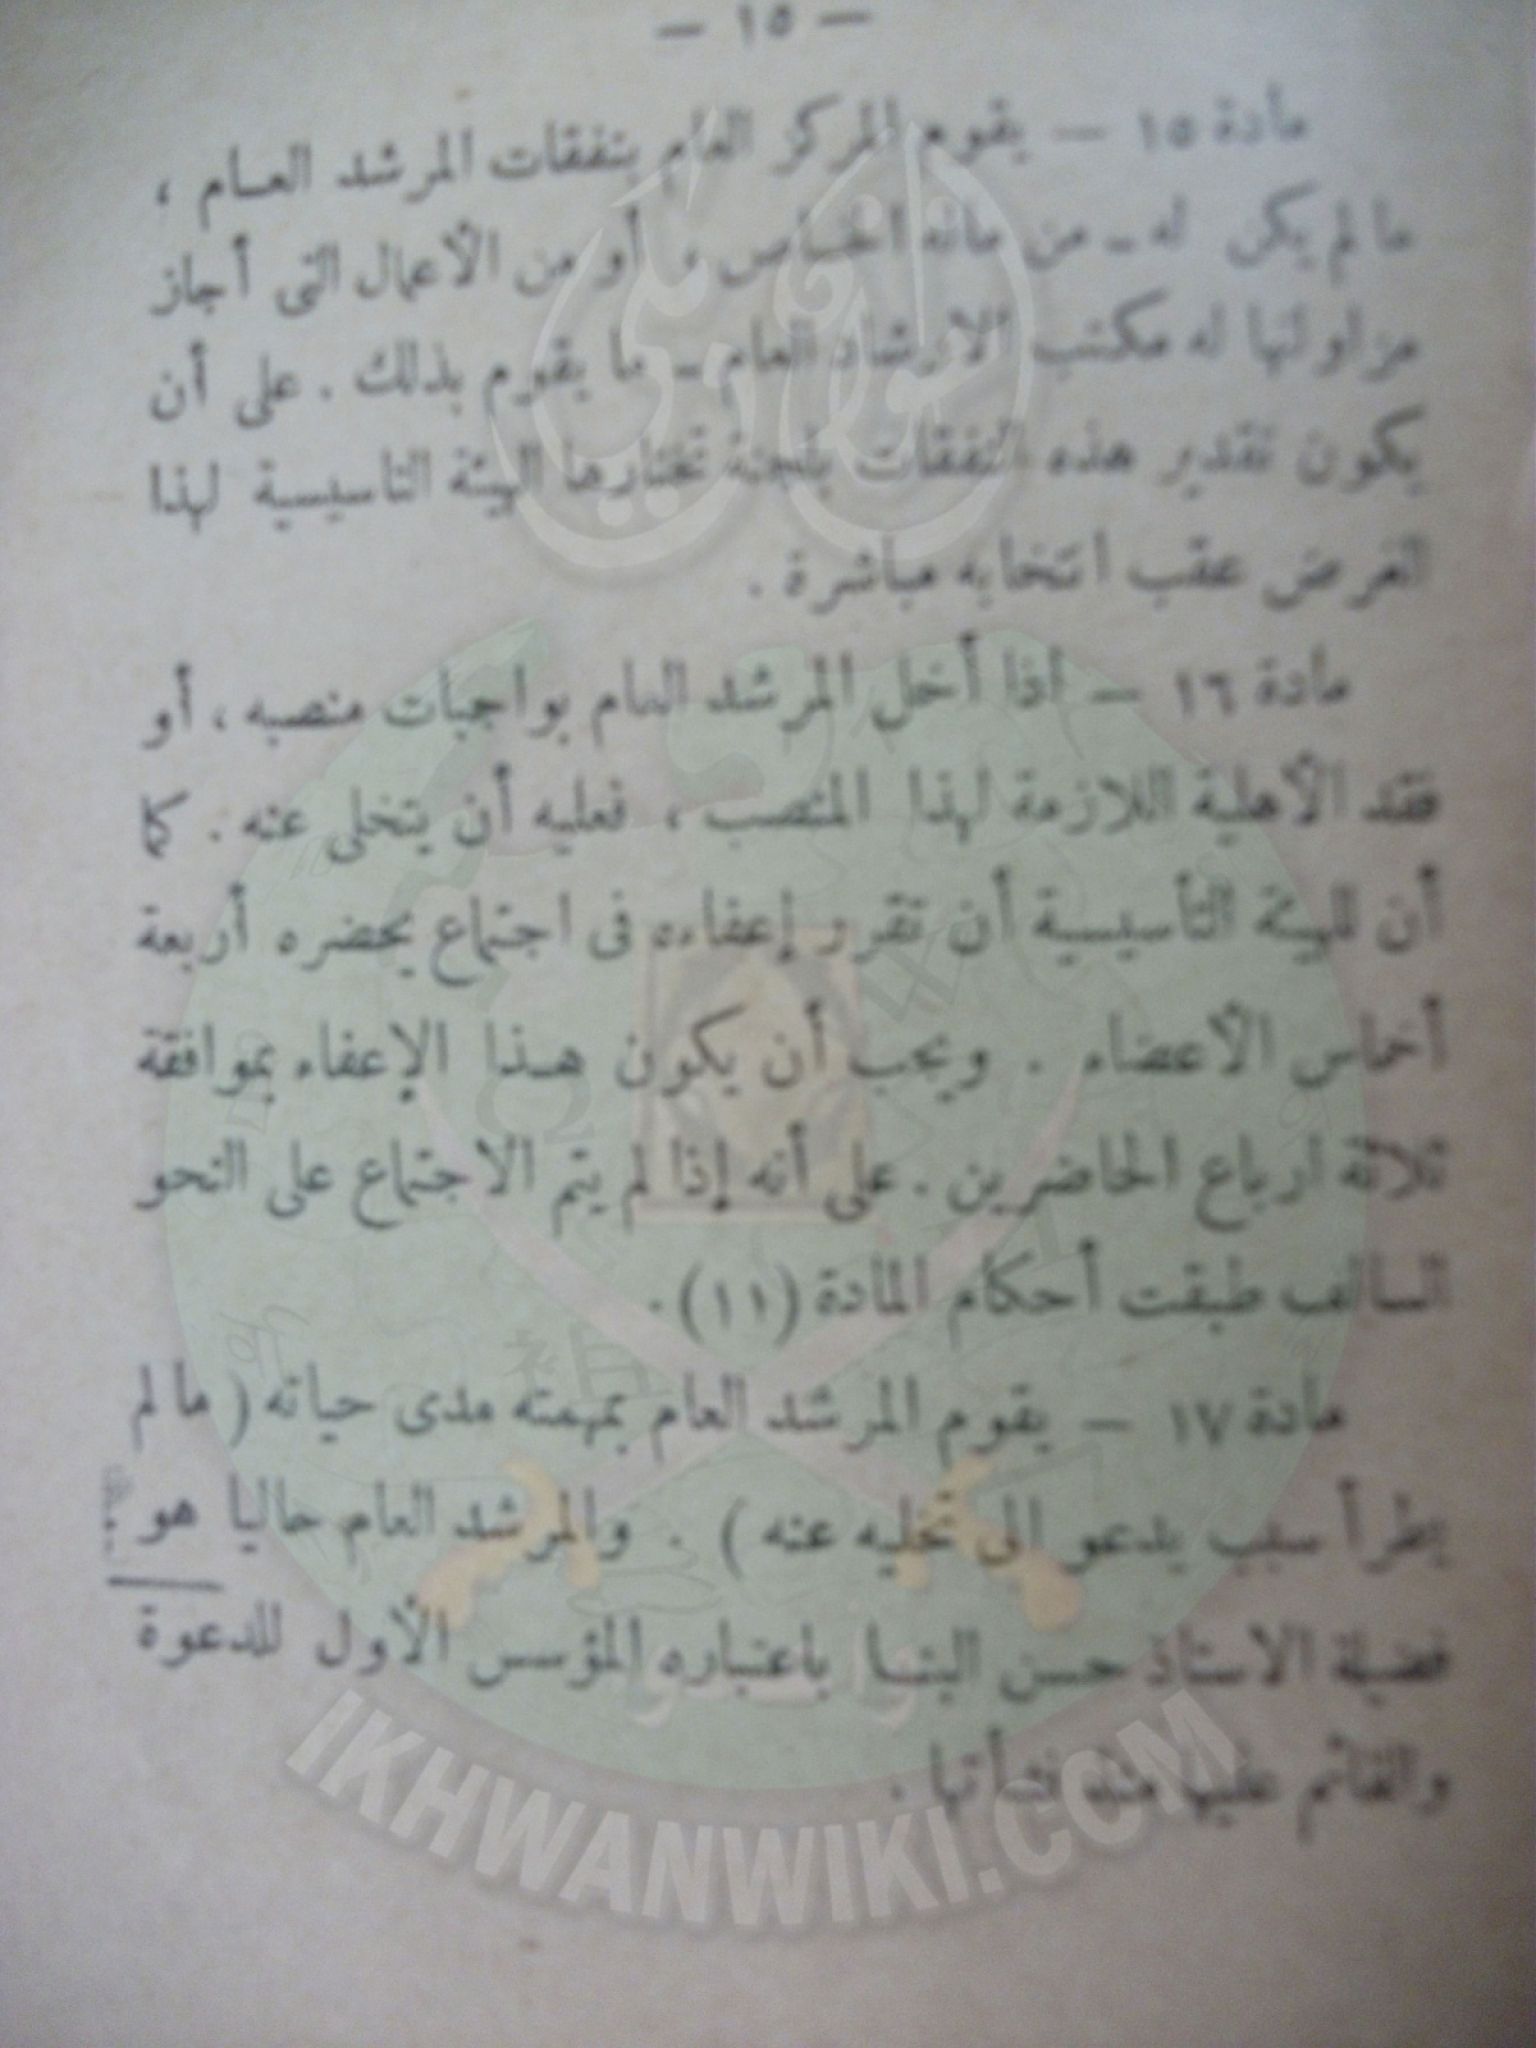 — ١٥ —
مادة ١٥ — يقوم المركز العام بنفقات المرشد العام ،
ما لم يكن له ـ من ماله الخاص ، أو من الأعمال التى أجاز
مزاولتها له مكتب الارشاد العام ـ ما يقوم بذلك . على أن
يكون تقدير هذه النفقات بلجنة تختارها الهيئة التأسيسية لهذا
الغرض عقب انتخابه مباشرة .
مادة ١٦ — إذا أخل المرشد العام بواجبات منصبه ، أو
فقد الأهلية اللازمة لهذا المنصب ، فعليه أن يتخلى عنه . كما
أن للهيئة التأسيسية أن تقرر إعفاءه فى اجتماع يحضره أربعة
أخماس الأعضاء . ويجب أن يكون هذا الإعفاء بموافقة
ثلاثة ارباع الحاضرين . على أنه إذا لم يتم الاجتماع على النحو
السالف طبقت أحكام المادة (١١) .
مادة ١٧ — يقوم المرشد العام بمهمته مدى حياته ( ما لم
يطرأ سبب يدعو إلى تخليه عنه ) . والمرشد العام حاليا هو :
فضيلة الاستاذ حسن البنا باعتباره المؤسس الأول للدعوة
والقائم عليها منذ نشأتها .
IKHWANWIKI.COM